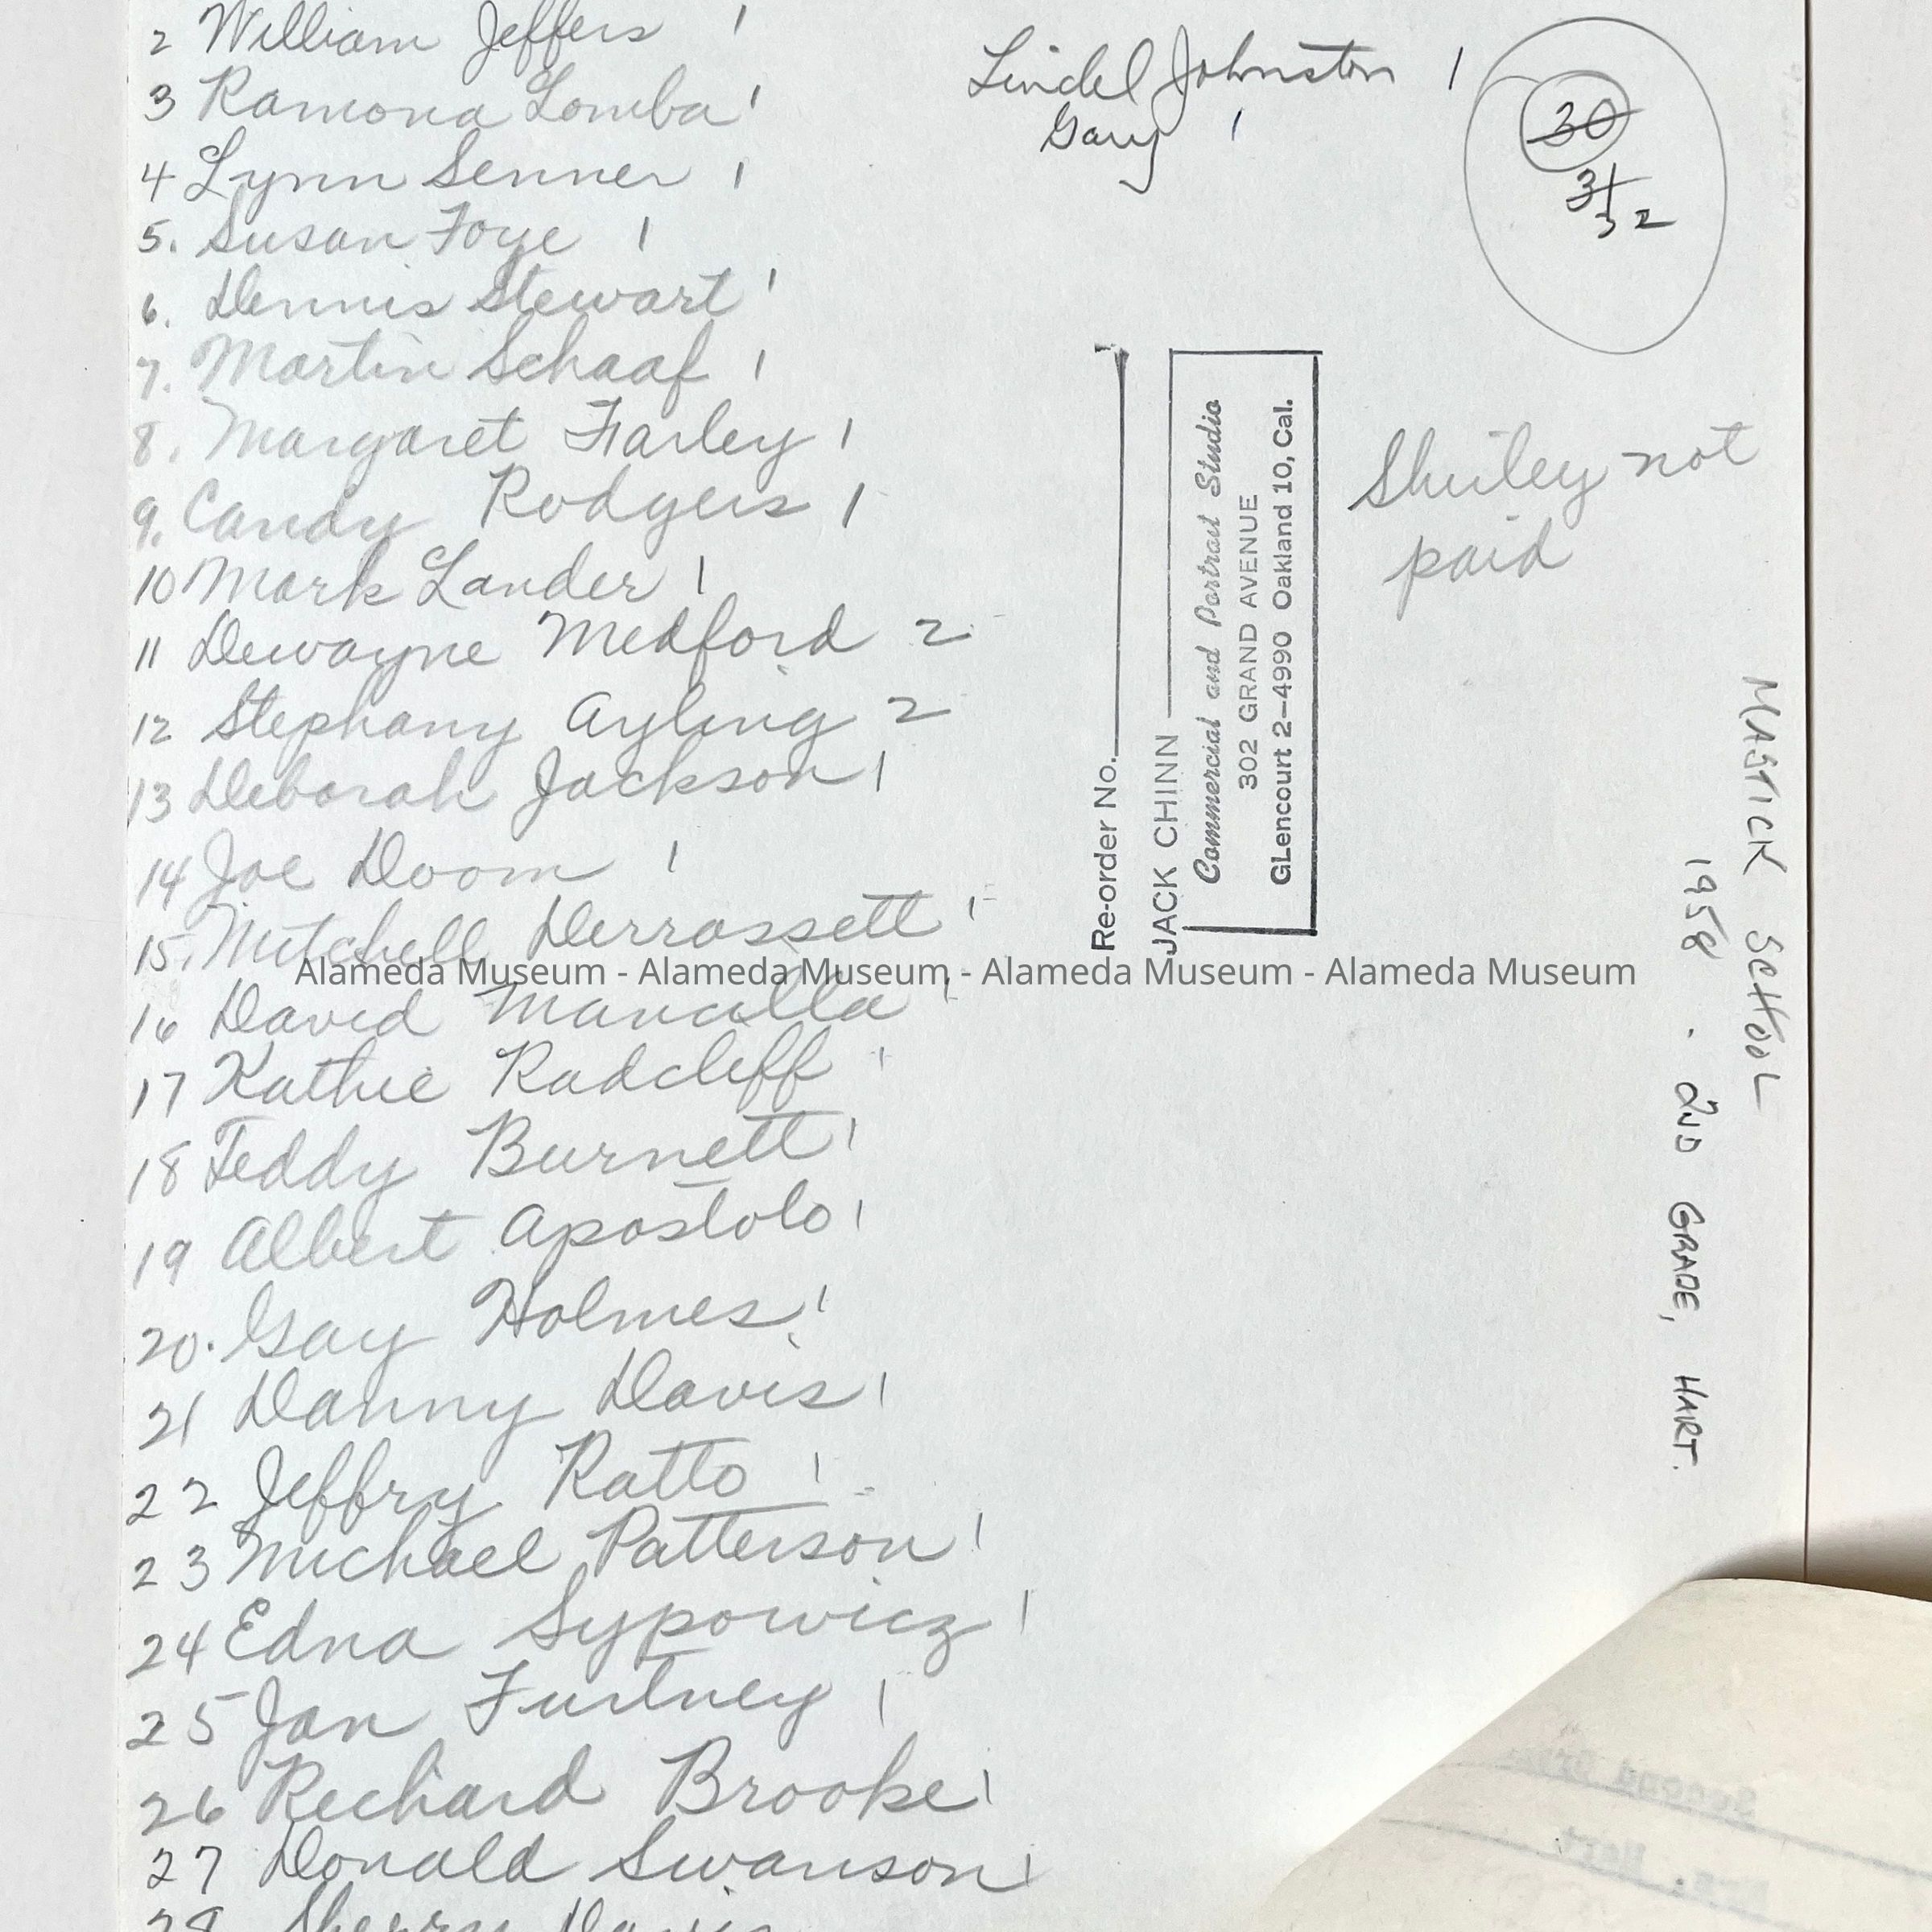 2 William Jeffers 1
3 Ramona Lomba 1
4 Lynn Senner 1
5. Susan Foye 1
6. Dennis Stewart 1
7. Martin Schaaf 1
8. Margaret Farley 1
9. Candy Rodgers 1
10 Mark Lander 1
11 Dewayne Medford 2
12 Stephany Ayling 2
13 Deborah Jackson 1
14 Joe Doom 1
15. Mitchell Derrossett 1
16 David 1
17 Kathie Radcliff 1
18 Teddy Burnett 1
19 Albert Apostolo 1
20. Gay Holmes 1
21 Danny Davis 1
22 Jeffry Ratto 1
23 Michael Patterson 1
24 Edna Sypowicz 1
25 Jan Furtney 1
26 Richard Brooke 1
27 Donald Swanson 1
28 Sherry Davis
Lindel Johnston 1
Gary 1
30
31
32
Re-order No.
JACK CHINN
Commercial and Portrait Studio
302 GRAND AVENUE
GLencourt 2-4990 Oakland 10, Cal.
Shirley not
paid
MASTICK SCHOOL
1958 . 2ND GRADE, HART.
Alameda Museum - Alameda Museum - Alameda Museum - Alameda Museum
Second Grade
Mrs. Hart